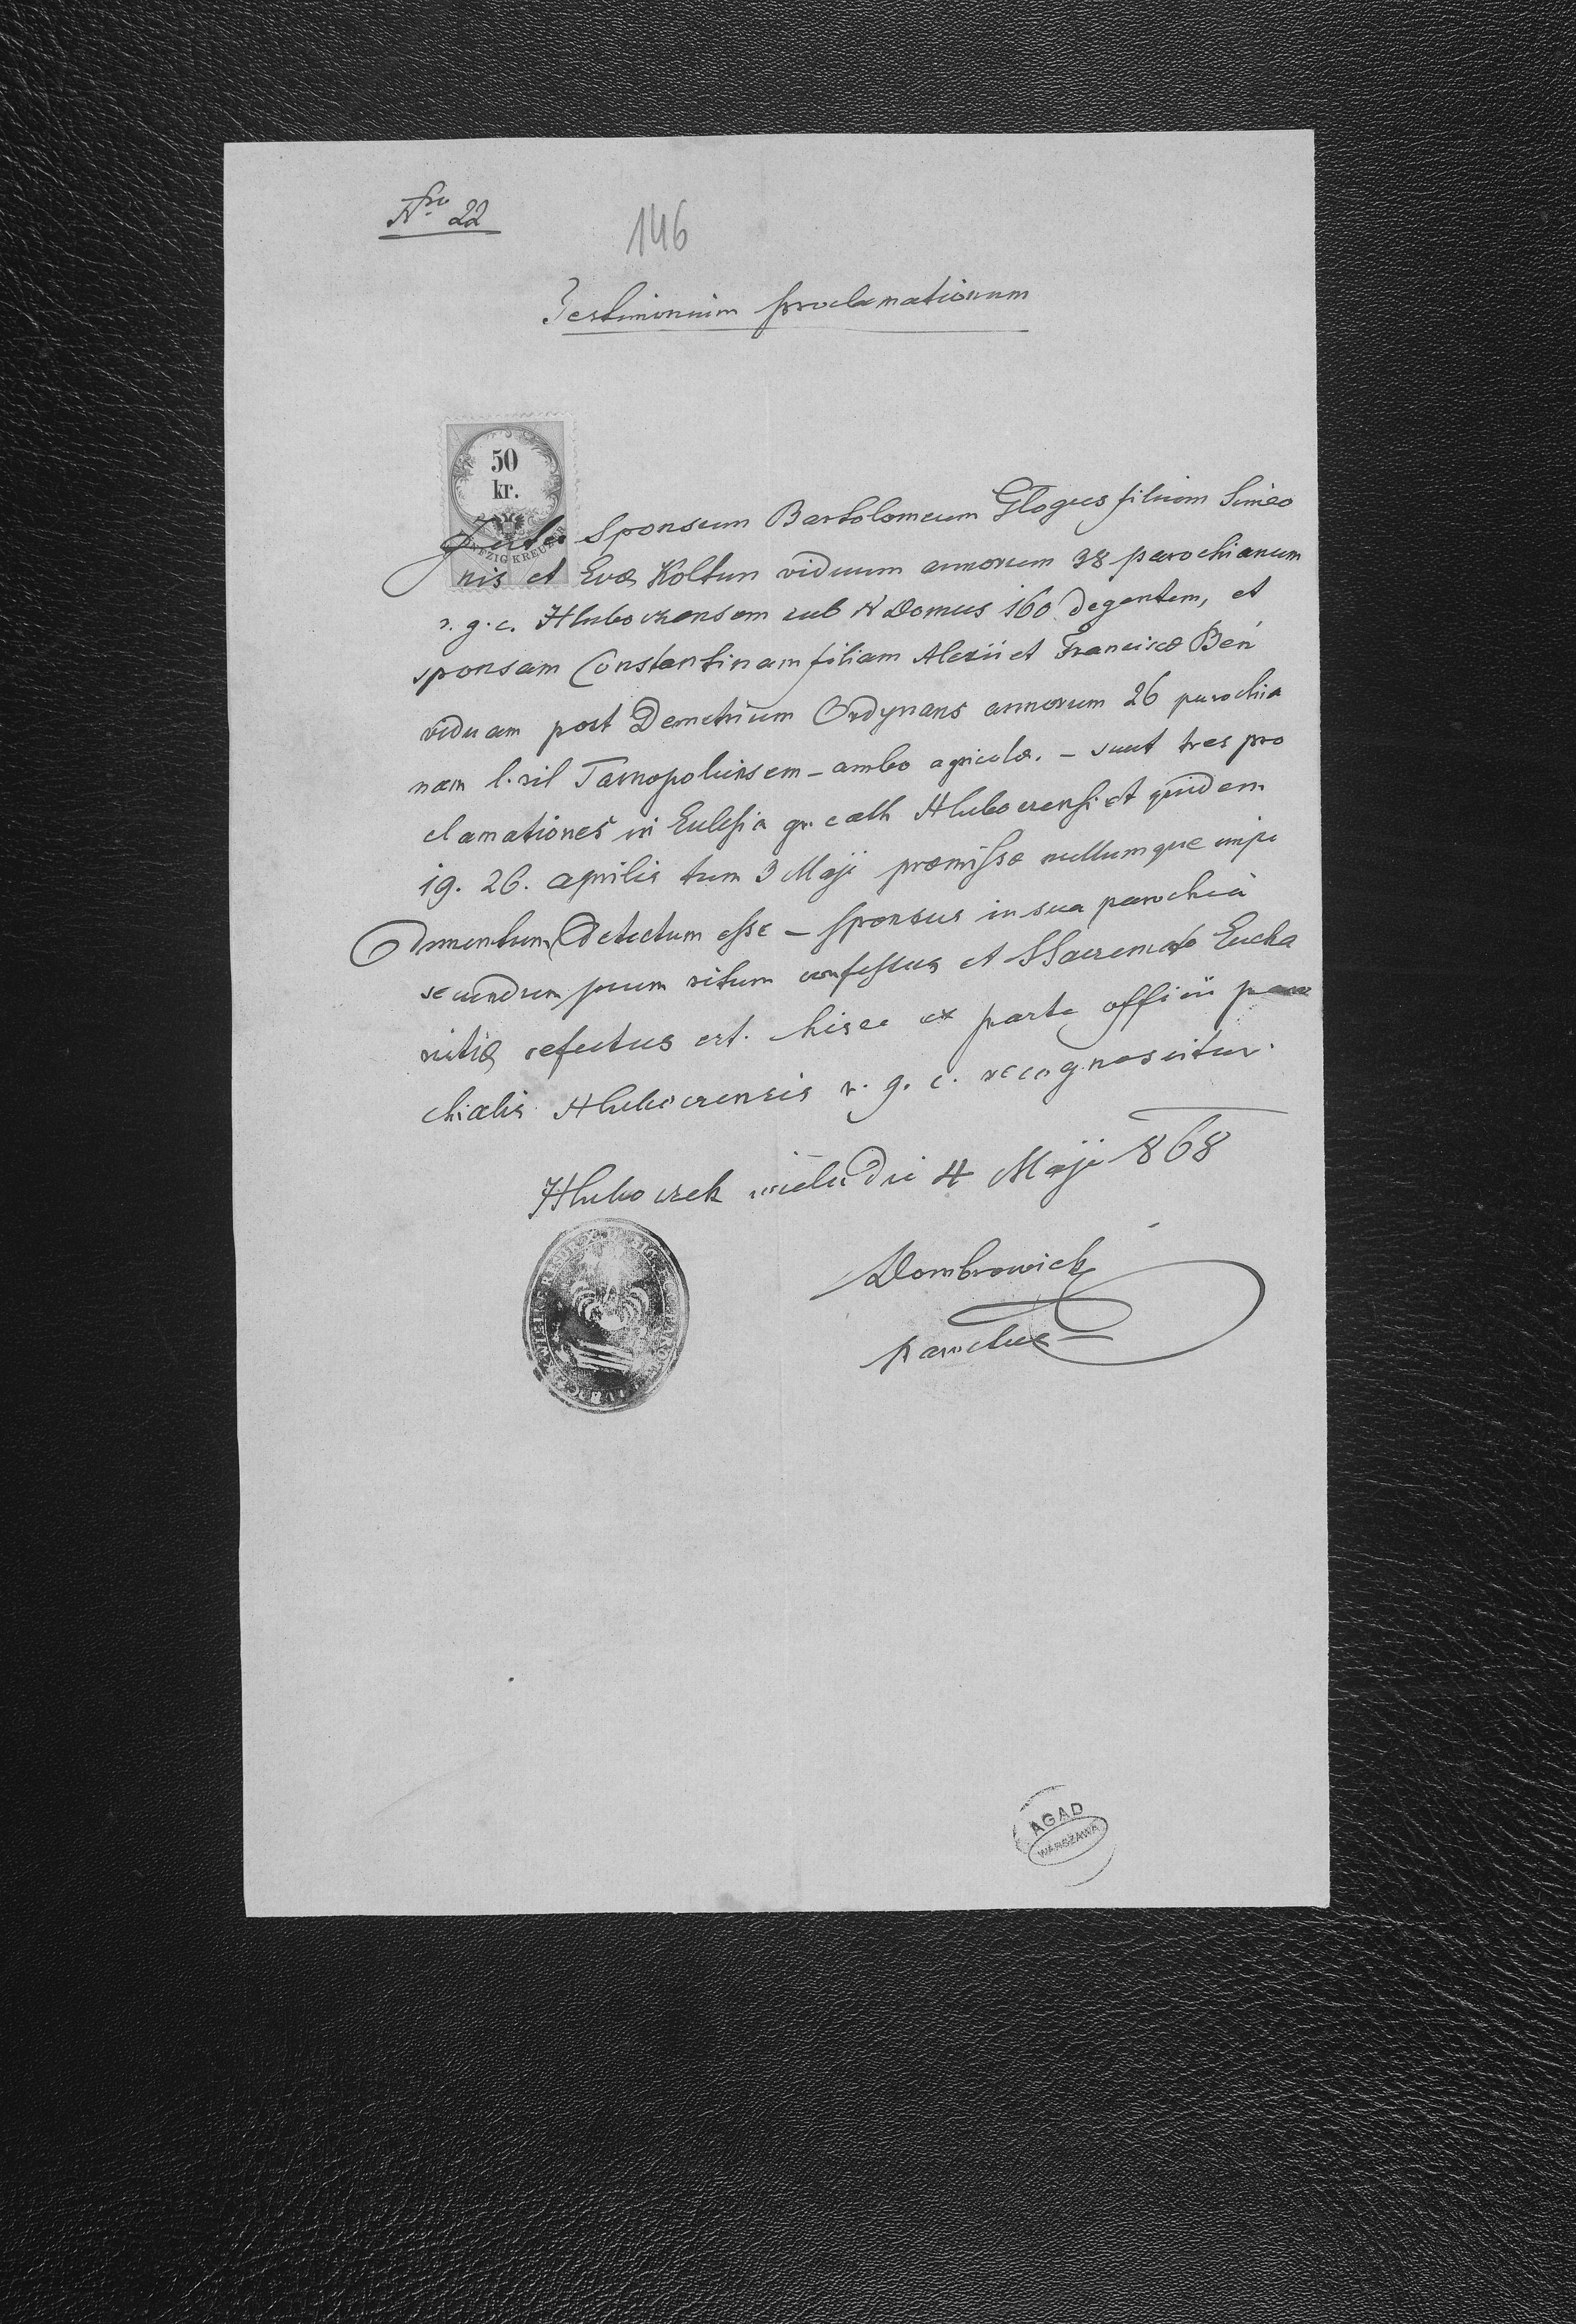 Nro 22
146
Testimonium proclamationum
50
kr.
Inter Sponsum Bartolomeum Glogus filium Simeo
nis et Evæ Koltun viduum annorum 38 parochianum
r. g. c. Hluboczensem sub N Domus 160 degentem, et
sponsam Constantinam filiam Alexii et Franciscæ Beń
viduam post Demetrium Ordynans annorum 26 parochia
nam l. rit Tarnopoliensem – ambo agricolæ. – sunt tres pro
clamationes in Eclesia gr. cath Hluboczensi et quidem
19. 26. aprilis tum 3 Maji præmissæ nullumque impe
dimentum detectum esse – sponsus in sua parochia
secundum suum ritum confessus et SSacramento Eucha
ristiæ refectus est. hisce ex parte officii paro
chialis Hluboczensis r. g. c. recognoscitur.
Hluboczek wielki die 4 Maji 868
Dombrowicki
parochus
AGAD
WARSZAWA